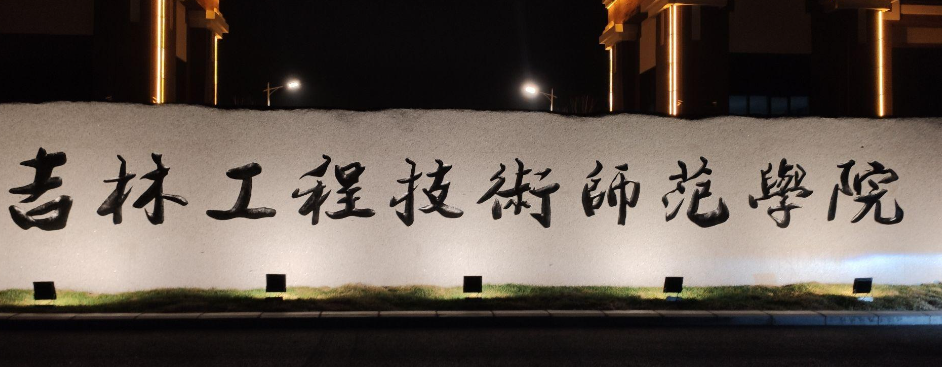 吉林工程技術師范學院